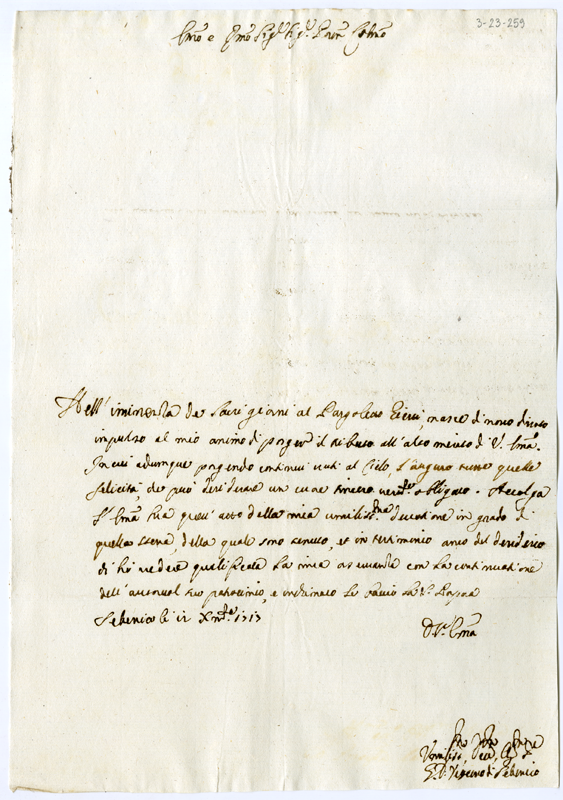 3-23-259
Em̃o e Rm̃o Sig.r Sig.r Pron Colmo
Nell' iminenza de Sacri giorni al Pargoleto Giesù, nasce di novo divoto
impulso al mio animo di porger il tributo all' alto merito di V. Em̃a.
In cui adunque porgendo continui voti al Cielo, l'auguro tutte quelle
felicità, che può desiderare un cuore sincero verm.te obligato. Accolga
V. Em̃a quest' atto della mia umiliss.ma devotione in grado di
quella stima, della quale sono tenuto, et in testimonio anco del desiderio
di veder qualificata la mia osservanza con la continuatione
dell' autoreuol suo patrocinio, e inchinato le bacio la S. Porpora
Sebenico li 12 Xm̃bre 1713
D. V. Em̃a
Umiliss.
Vescovo di Sebenico